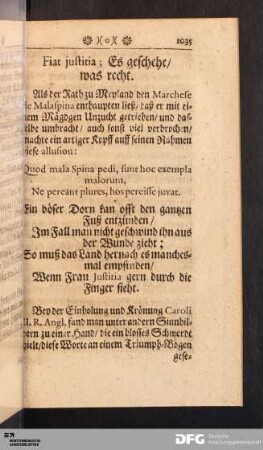 1035
Fiat justitia; Es geschehe/
was recht.
Als der Rath zu Meyland den Marchese
de Malaspina enthaupten ließ/ daß er mit ei-
nem Mägdgen Unzucht getrieben/ und das-
selbe umbracht/ auch sonst viel verbrochen/
machte ein artiger Kopff auff seinen Nahmen
diese allusion:
Quod mala Spina pedi, sunt hoc exempla
malorum,
Ne pereant plures, hos pereisse juvat.
Ein böser Dorn kan offt den gantzen
Fuß entzünden/
Im Fall man nicht geschwind ihn aus
der Wunde zieht;
So muß das Land hernach es manches-
mal empfinden/
Wenn Frau Justitia gern durch die
Finger sieht.
Bey der Einholung und Krönung Caroli
II. R. Angl. fand man unter andern Sinnbil-
dern zu einer Hand/ die ein blosses Schwerdt
hielt/ diese Worte an einem Triumph-Bogen
gese-
DFG Deutsche
Forschungsgemeinschaft